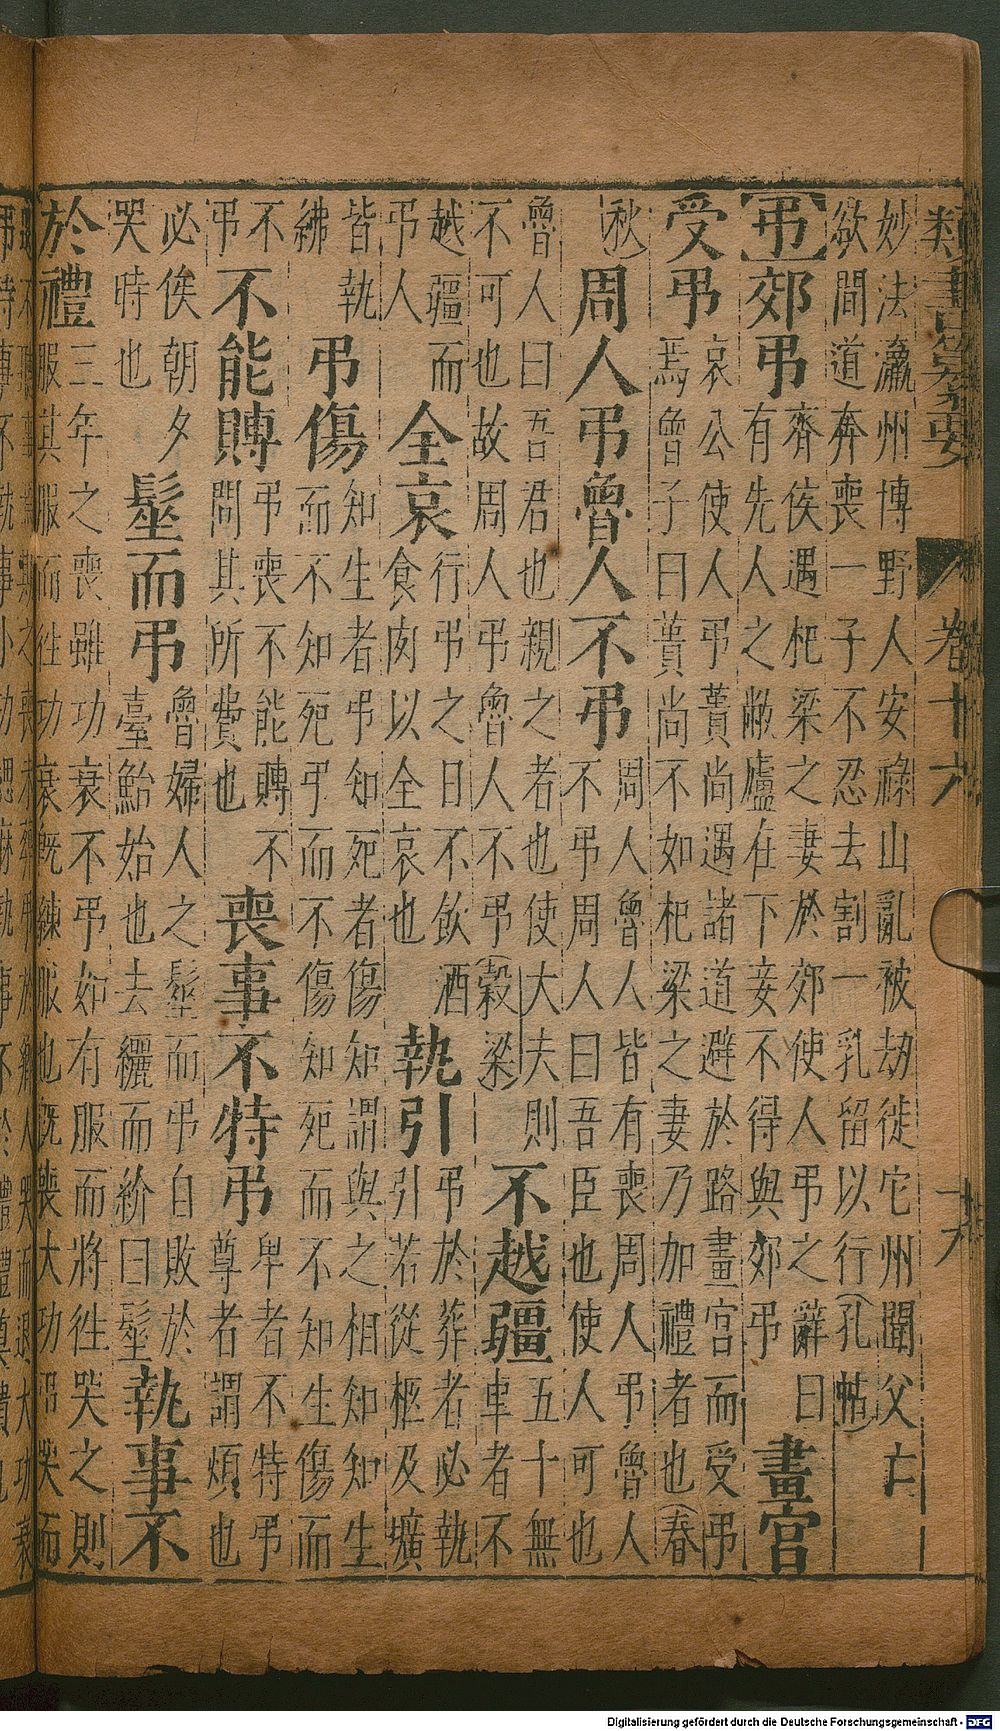 類書纂要 卷十九 十六
妙法瀛州博野人安祿山亂被劫徙它州聞父亡
欲間道奔喪一子不忍去割一乳留以行(孔帖)
【弔】郊弔
齊侯遇杞梁之妻於郊使人弔之辭曰
有先人之敝廬在下妾不得與郊弔
畫宮
受弔
哀公使人弔蕢尚遇諸道避於路畫宮而受弔
焉曾子曰蕢尚不如杞梁之妻乃加禮者也(春
秋)
周人弔魯人不弔
周人魯人皆有喪周人弔魯人
不弔周人曰吾臣也使人可也
魯人曰吾君也親之者也使大夫則
不可也故周人弔魯人不弔(穀梁)
不越疆
五十無
車者不
越疆而
弔人
全哀
行弔之日不飲酒
食肉以全哀也
執引
弔於葬者必執
引若從柩及壙
皆執
紼
弔傷
知生者弔知死者傷知謂與之相知知生
而不知死弔而不傷知死而不知生傷而
不
弔
不能賻
弔喪不能賻不
問其所費也
喪事不特弔
卑者不特弔
尊者謂煩也
必俟朝夕
哭時也
髽而弔
魯婦人之髽而弔自敗於
臺鮐始也去纚而紒曰髽
執事不
於禮
三年之喪雖功衰不弔如有服而將往哭之則
服其服而往功衰既練服也既喪大功弔哭而